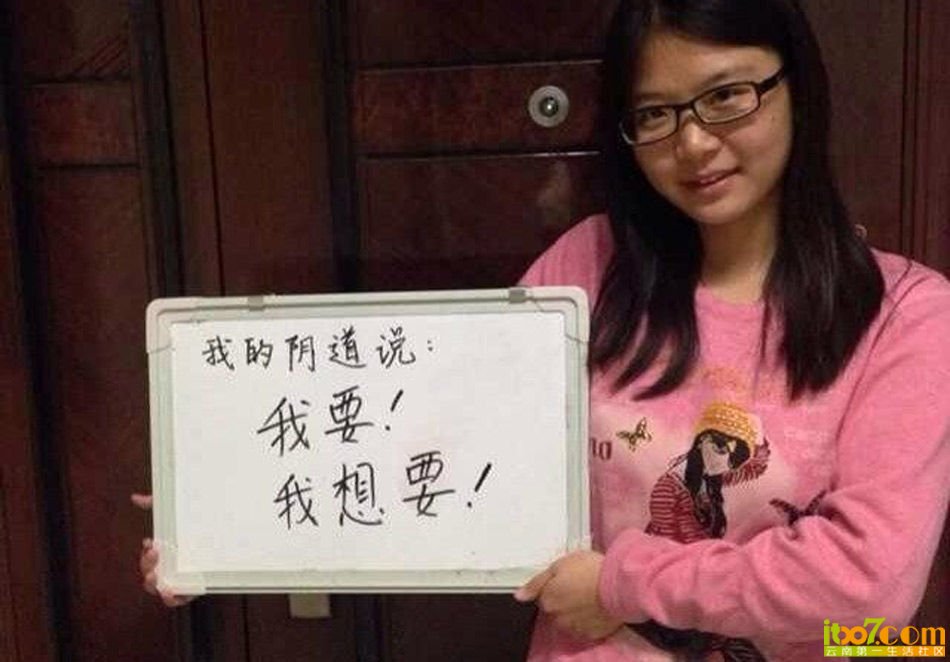 我的阴道说:
我要!
我想要!
itbo7.com
云南第一生活社区